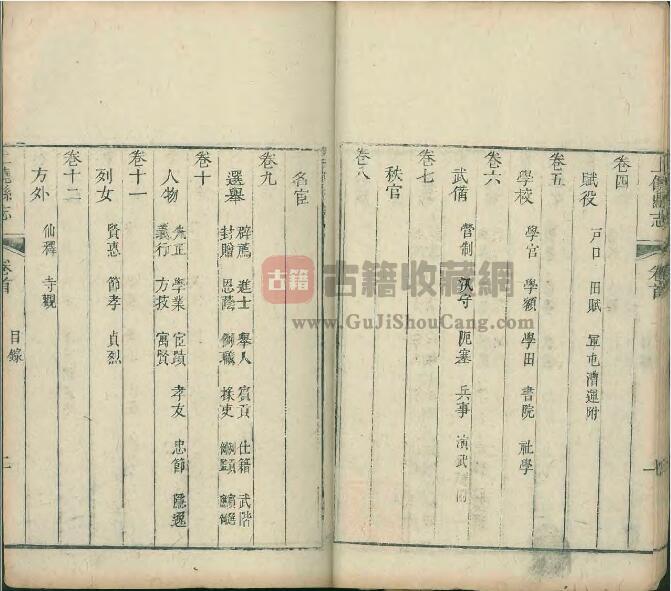 卷四
賦役
戸口 田賦 軍屯漕運附
卷五
學校
學官 學額 學田 書院 社學
卷六
武備
營制 汛守 阨塞 兵事 演武
卷七
秩官
卷八
名宦
卷九
選舉
辟薦 進士 舉人 貢 仕籍 武階
封贈 恩蔭 例職 掾吏
卷十
人物
先正 學業 宦蹟 孝友 忠節 隱逸
義行 方技 寓賢
卷十一
列女
賢惠 節孝 貞烈
卷十二
方外
仙釋 寺觀
上饒縣志
卷首
目錄
二
上饒縣志
卷首
一
古籍
古籍收藏網
www.GuJiShouCang.com